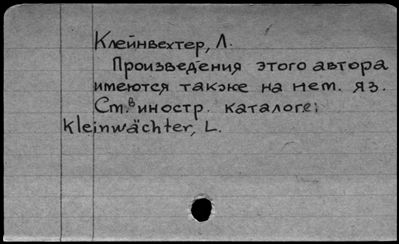 Клейнвехтер, Л.
Произведения этого автора
имеются также на нем. яз.
См. в иностр. каталоге:
Kleinwächter, L.